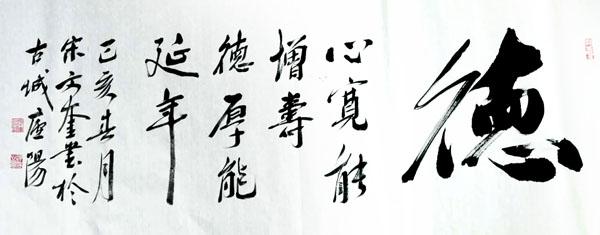 德
心寬能
增壽
德厚能
延年
己亥春月
宋文奎書於
古城廬陽